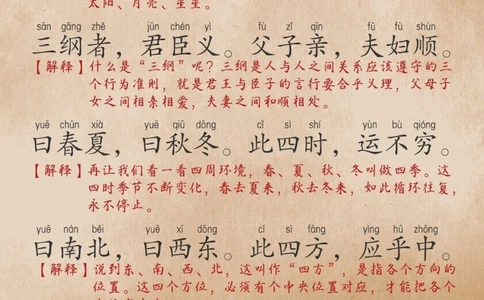 太阳、月亮、星星。
sān gāng zhě jūn chén yì fù zǐ qīn fū fù shùn
三纲者，君臣义。父子亲，夫妇顺。
【解释】什么是“三纲”呢？三纲是人与人之间关系应该遵守的三
个行为准则，就是君王与臣子的言行要合乎义理，父母子
女之间相亲相爱，夫妻之间和顺相处。
yuē chūn xià yuē qiū dōng cǐ sì shí yùn bù qióng
曰春夏，曰秋冬。此四时，运不穷。
【解释】再让我们看一看四周环境，春、夏、秋、冬叫做四季。这
四时季节不断变化，春去夏来，秋去冬来，如此循环往复，
永不停止。
yuē nán běi yuē xī dōng cǐ sì fāng yìng hū zhōng
曰南北，曰西东。此四方，应乎中。
【解释】说到东、南、西、北，这叫作“四方”，是指各个方向的
位置。这四个方位，必须有个中央位置对应，才能把各个